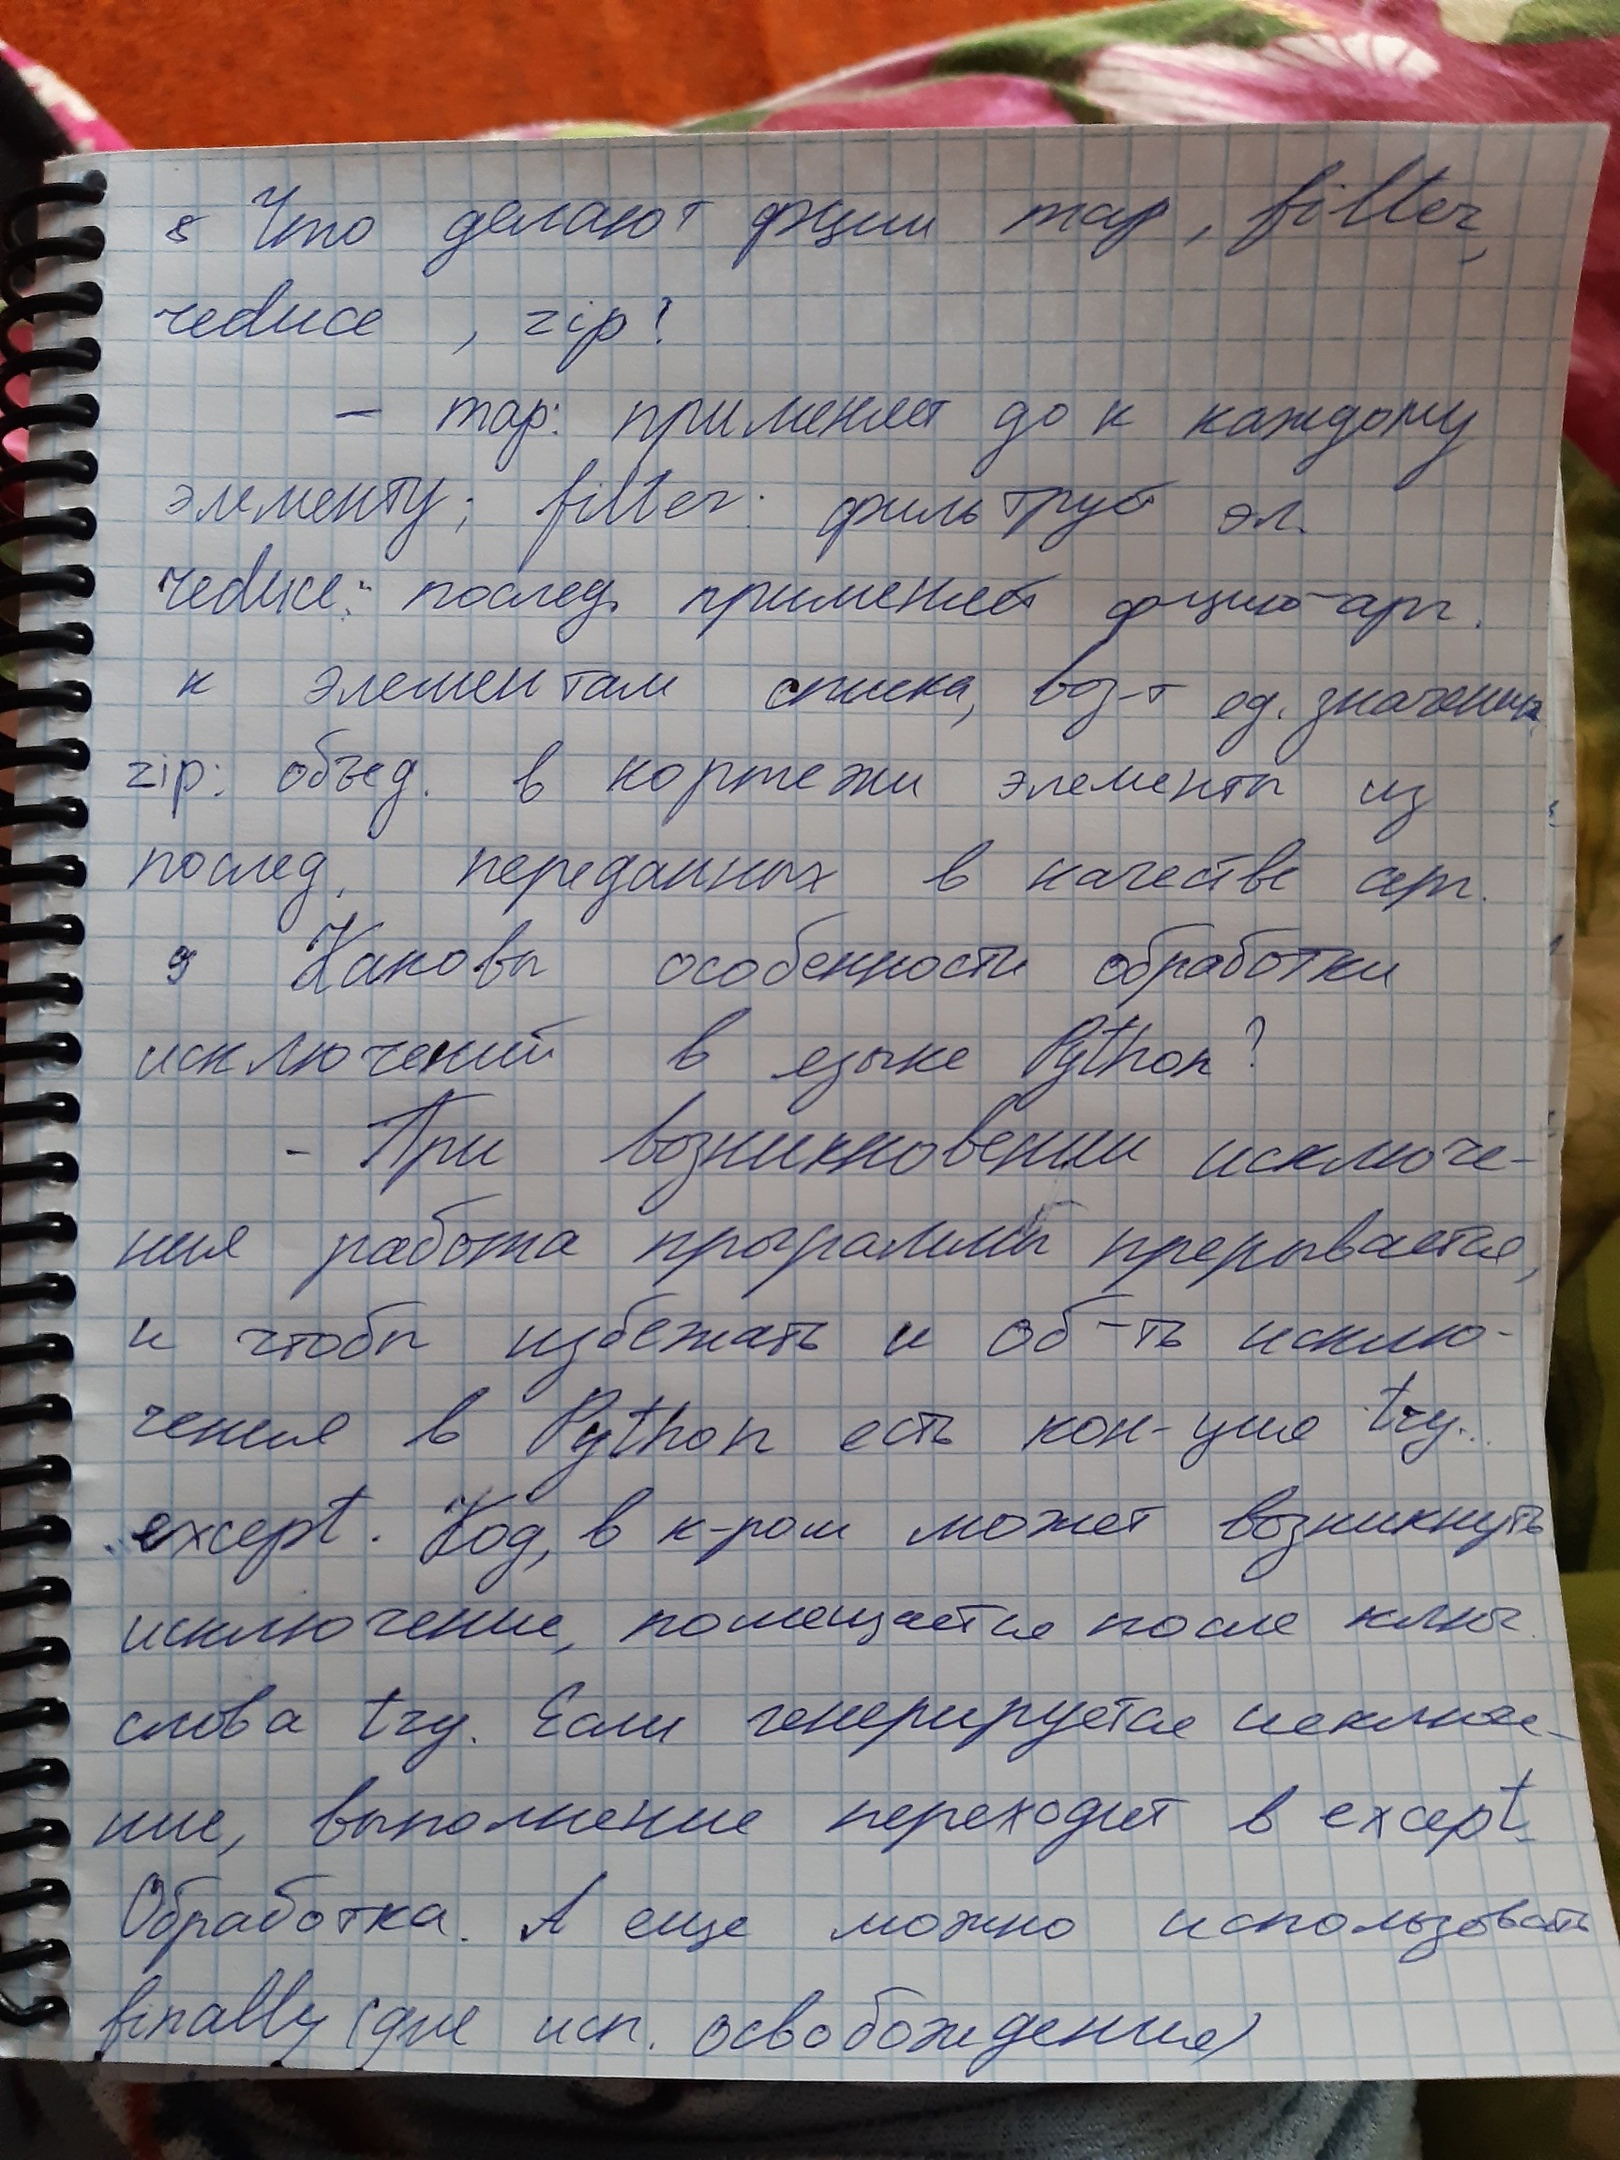 8 Что делают фции map, filter,
reduce, zip?
- map: применяет до к каждому
элементу; filter: фильтрует эл.
reduce: послед. применяет фцию-арг.
к элементам списка, воз-т ед. значение
zip: объед. в кортежи элементы из
послед. переданных в качестве арг.
9 Каковы особенности обработки
исключений в языке Python?
- При возникновении исключе-
ния работа программы прерывается,
и чтобы избежать и об-ть исклю-
чения в Python есть кон-ция try..
..except. Код, в к-ром может возникнуть
исключение, помещается после ключ.
слова try. Если генерируется исключе-
ние, выполнение переходит в except.
Обработка. А еще можно использовать
finally (для исп. освобождения)